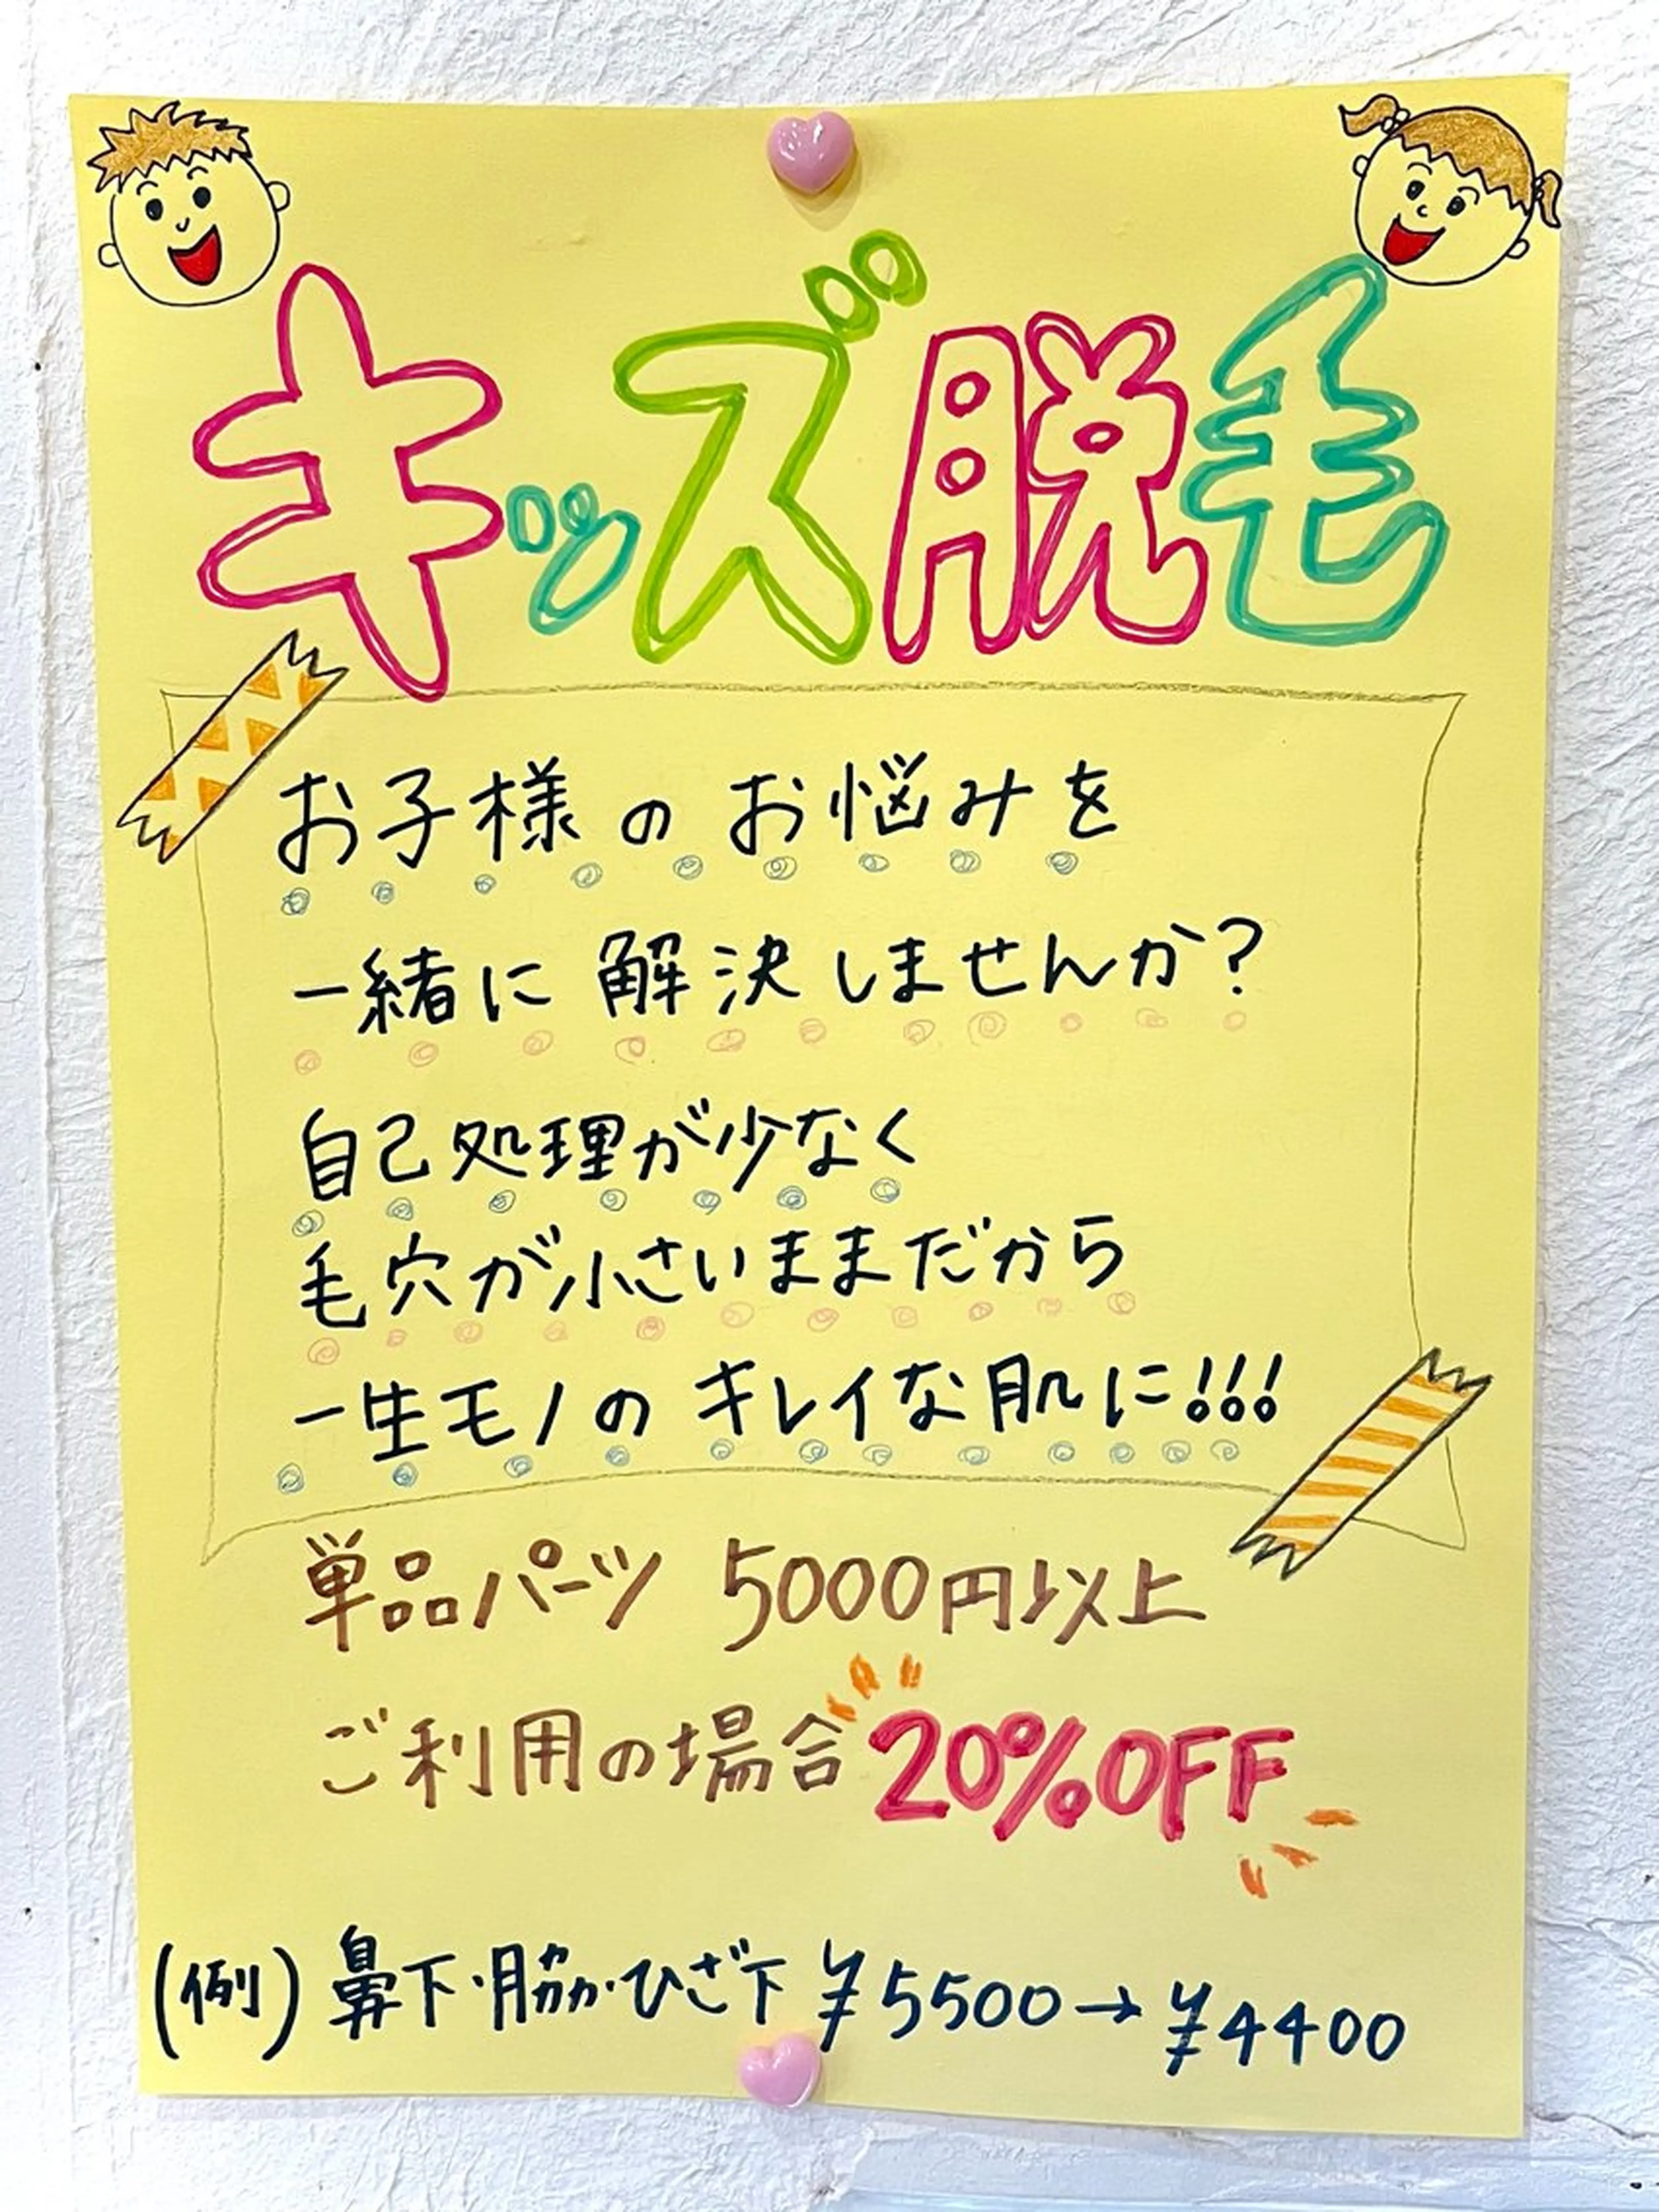 キッズ脱毛
お子様のお悩みを
一緒に解決しませんか？
自己処理が少なく
毛穴が小さいままだから
一生モノのキレイな肌に!!!
単品パーツ 5000円以上
ご利用の場合 20%OFF
(例) 鼻下・脇・ひざ下 ¥5500→¥4400